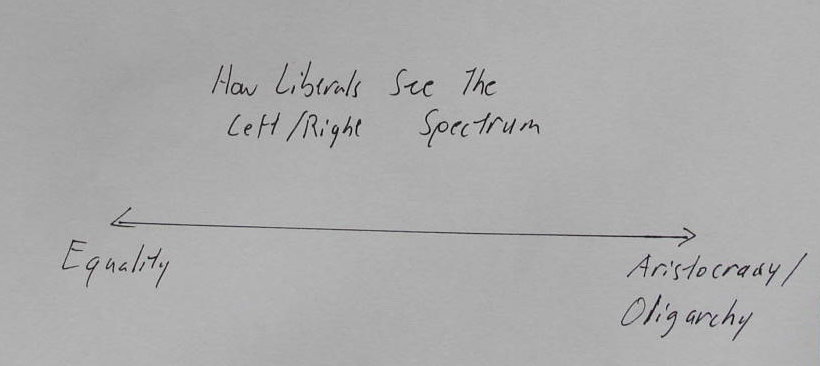 How Liberals See The
Left/Right Spectrum
Equality
Aristocracy/
Oligarchy